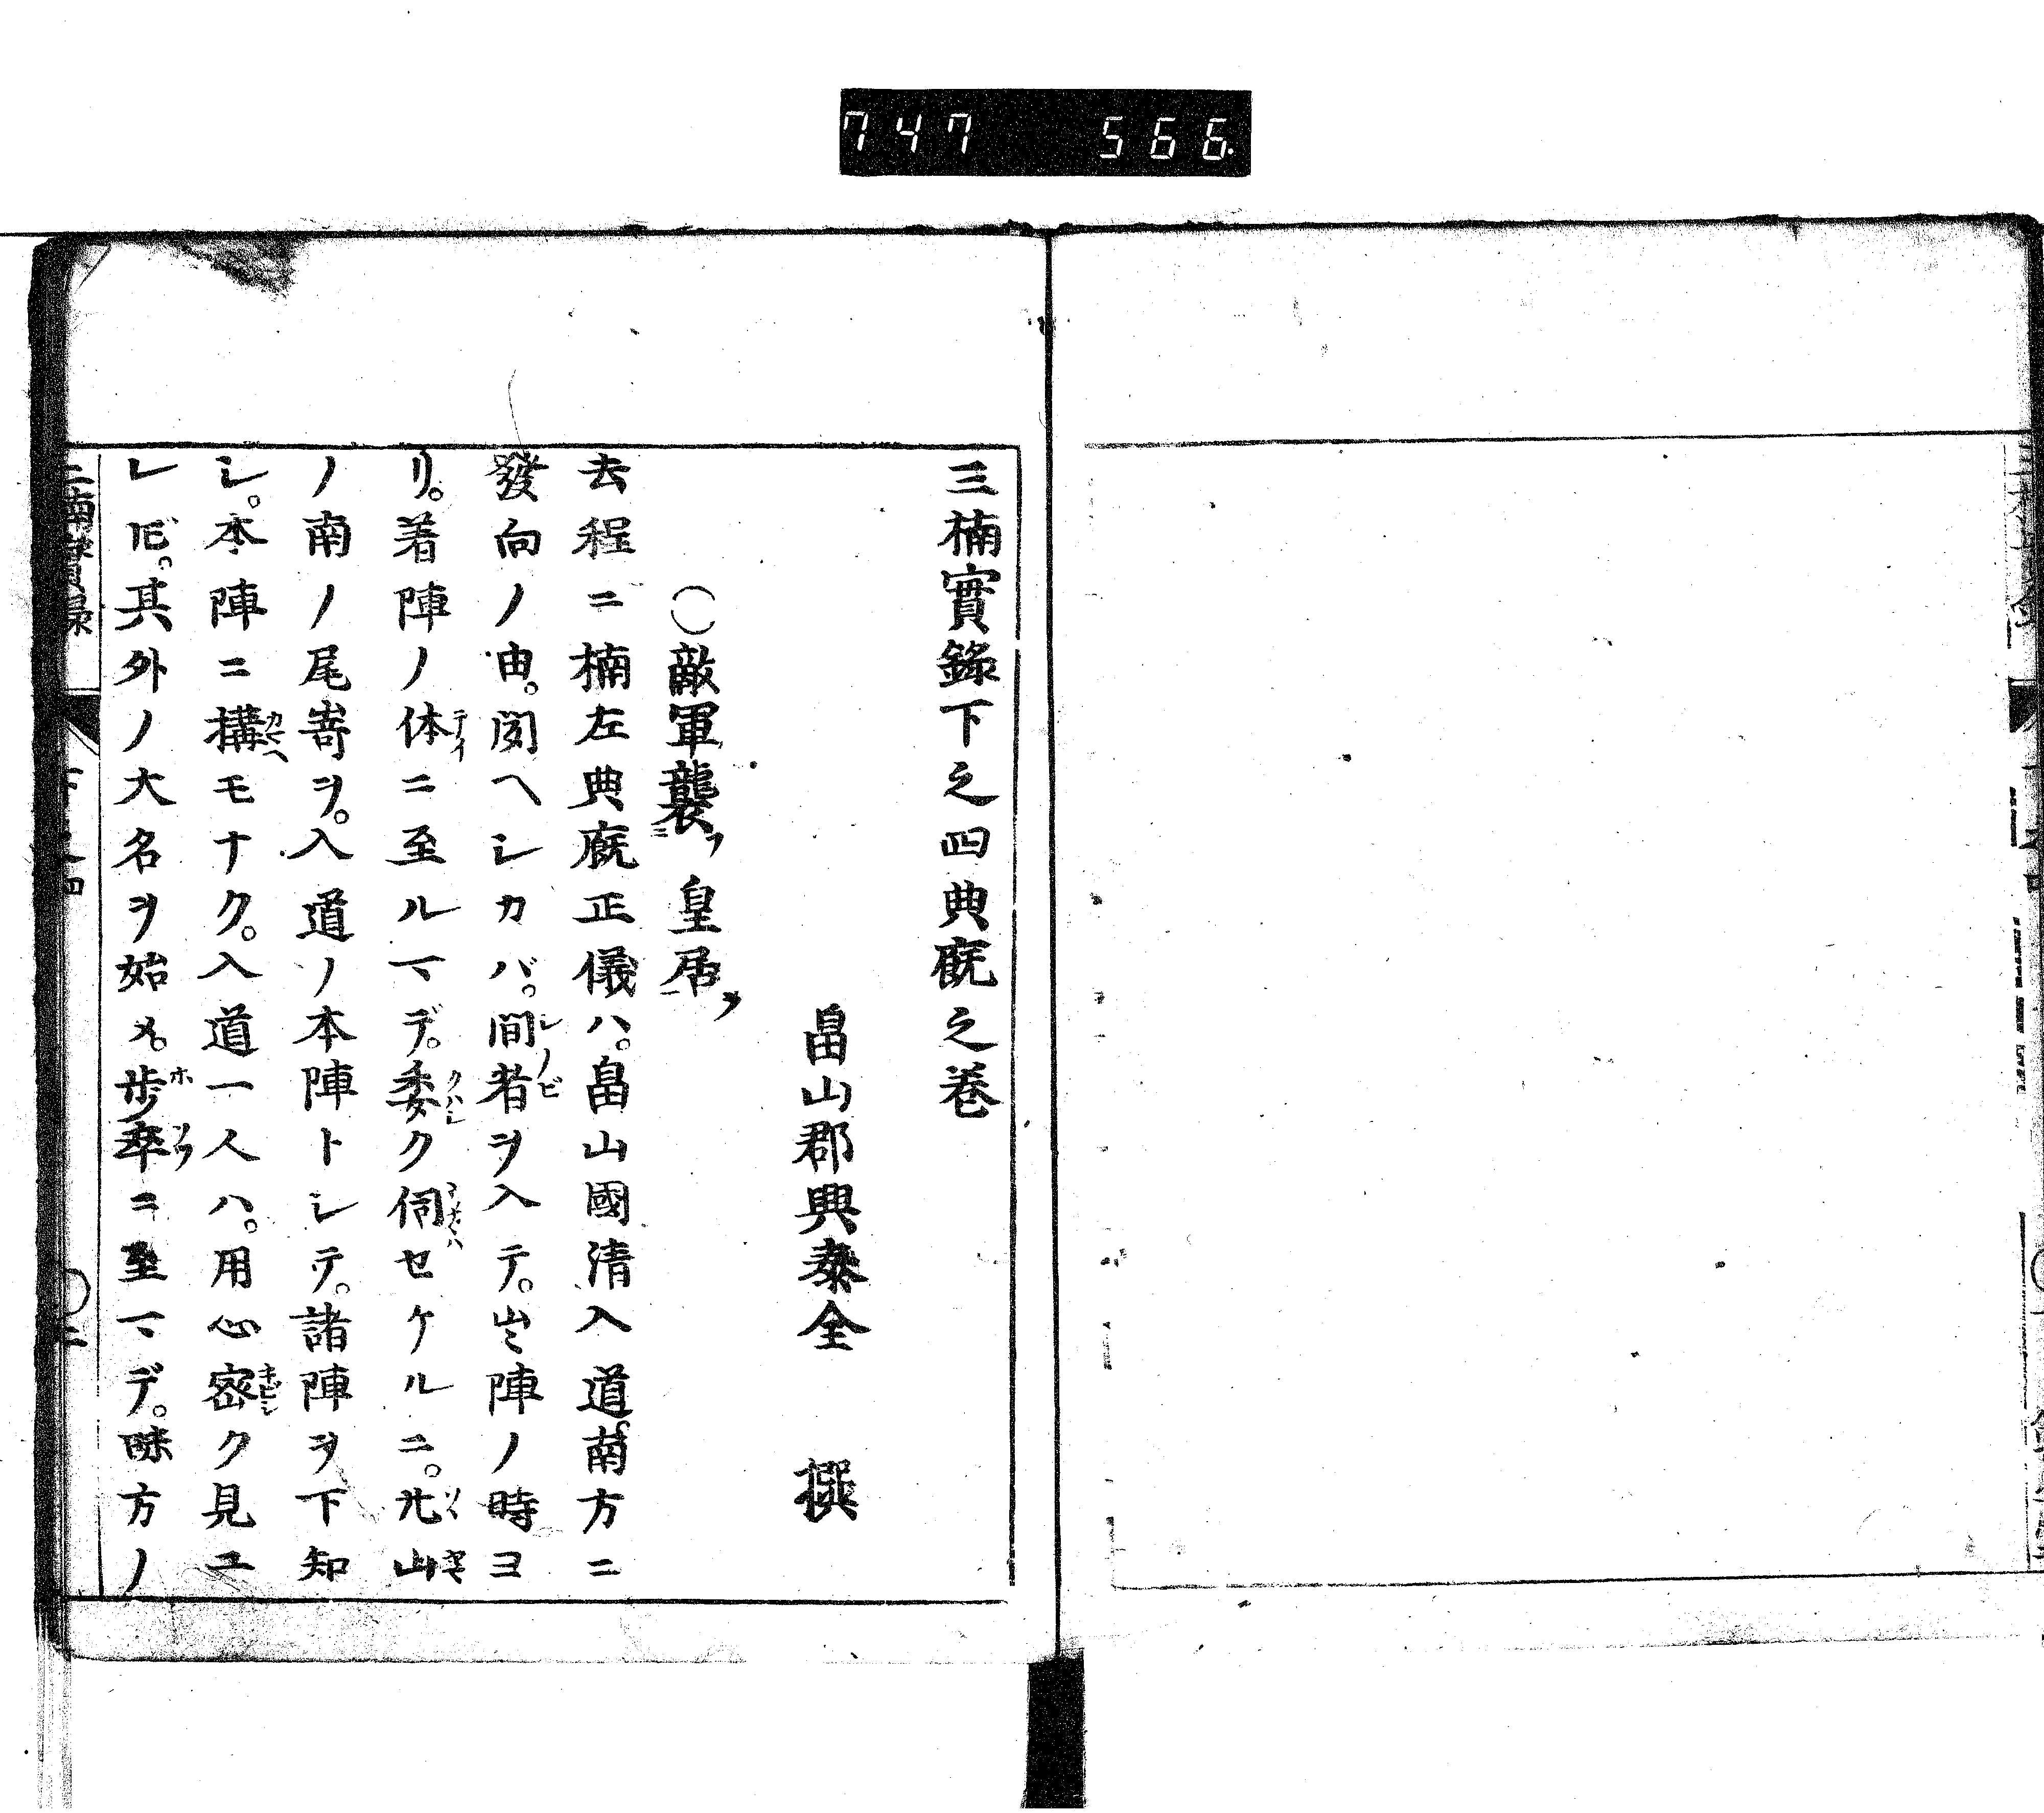 747 566
三楠實錄下之四典廐之巻
畠山郡興泰全 撰
〇敵軍襲フ皇居ヲ
去程ニ楠左典廐正儀ハ。畠山國清入道南方ニ
發向ノ由。聞ヘシカバ。間者ヲ入テ。岦陣ノ時ヨ
リ。着陣ノ体ニ至ルマデ。委ク伺セケルニ。山
ノ南ノ尾嵜ヲ。入道ノ本陣トシテ。諸陣ヲ下知
シ。本陣ニ構モナク。入道一人ハ。用心密ク見ユ
レ𪜈。其外ノ大名ヲ始メ。歩卒ニ至マデ。味方ノ
三楠實録 下之四 〇二